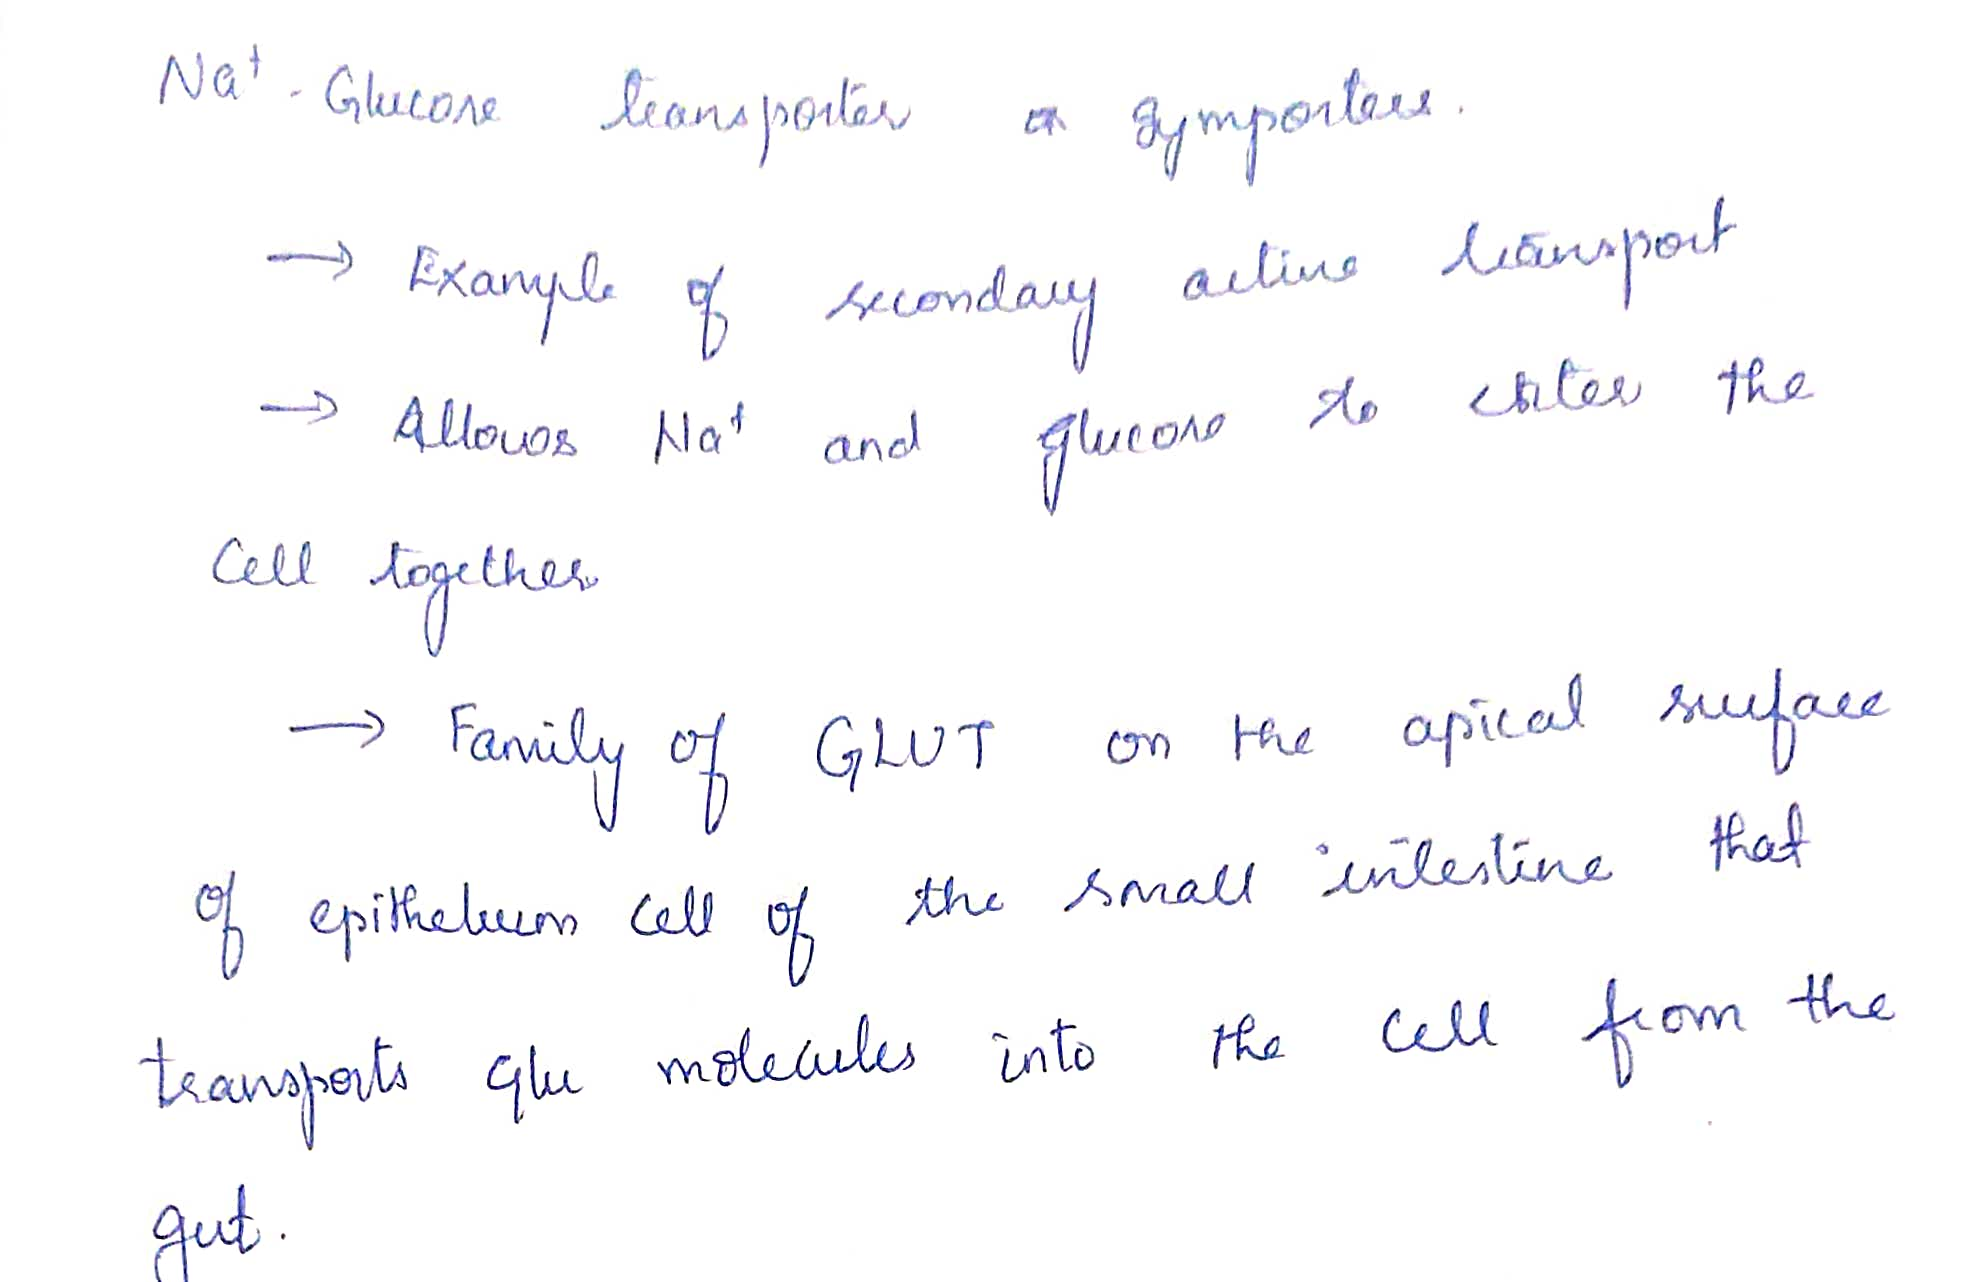 Na⁺ - Glucose transporter or symporters.
→ Example of secondary active transport
→ Allows Na⁺ and glucose to enter the
Cell together
→ Family of GLUT on the apical surface
of epithelium cell of the small intestine that
transports glu molecules into the cell from the
gut.